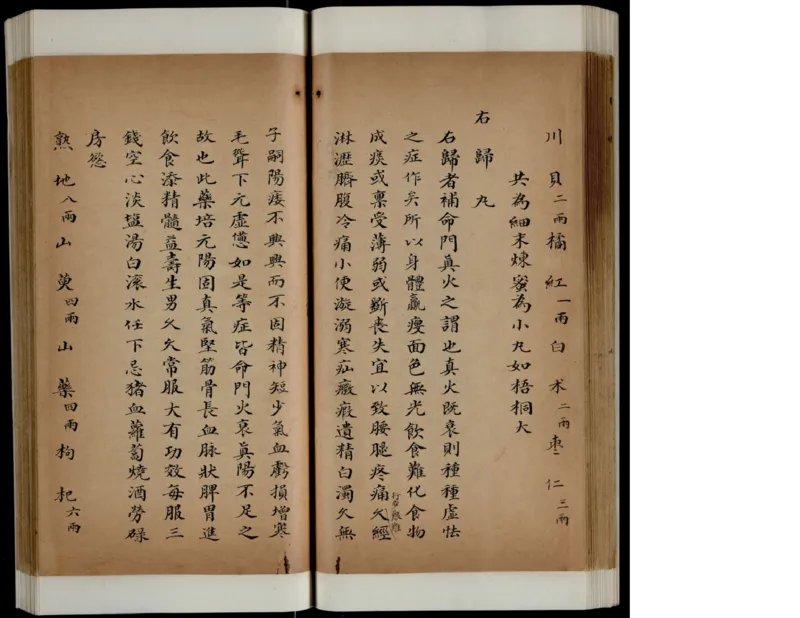 川貝二兩橘紅一兩白朮二兩棗仁三兩
共為細末煉蜜為小丸如梧桐大
右歸丸
右歸者補命門真火之謂也真火既衰則種種虛怯
之症作矣所以身體羸瘦面色無光飲食難化食物
成痰或禀受薄弱或斲喪失宜以致腰腿疼痛久經
行步艱難
淋瀝臍腹冷痛小便凝溺寒疝癥瘕遺精白濁久無
子嗣陽痿不興興而不固精神短少氣血虧損增寒
毛聳下元虛憊如是等症皆命門火衰真陽不足之
故也此藥培元陽固真氣堅筋骨長血脉狀脾胃進
飲食添精髓益壽生男久久常服大有功效每服三
錢空心淡盐湯白滾水任下忌猪血蘿蔔燒酒勞碌
房慾
熟地八兩山萸四兩山藥四兩枸杞六兩